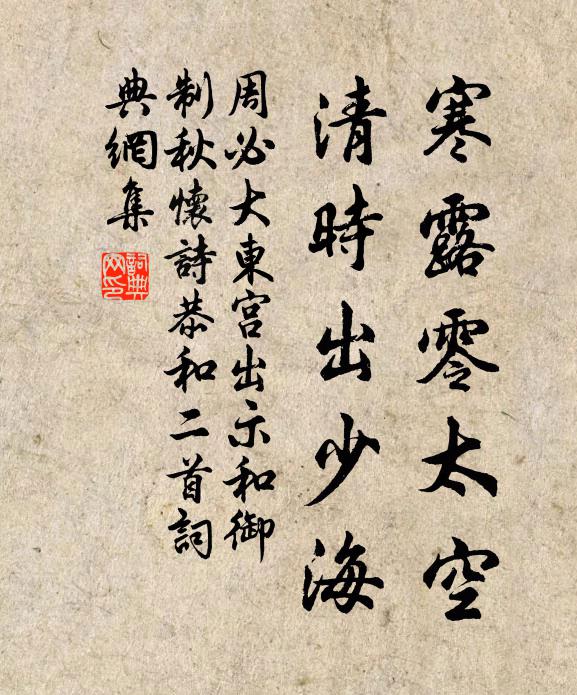 寒露零太空
清時出少海
周必大東宮出示和御
制秋懷詩恭和二首詞
典網集
詞典網印